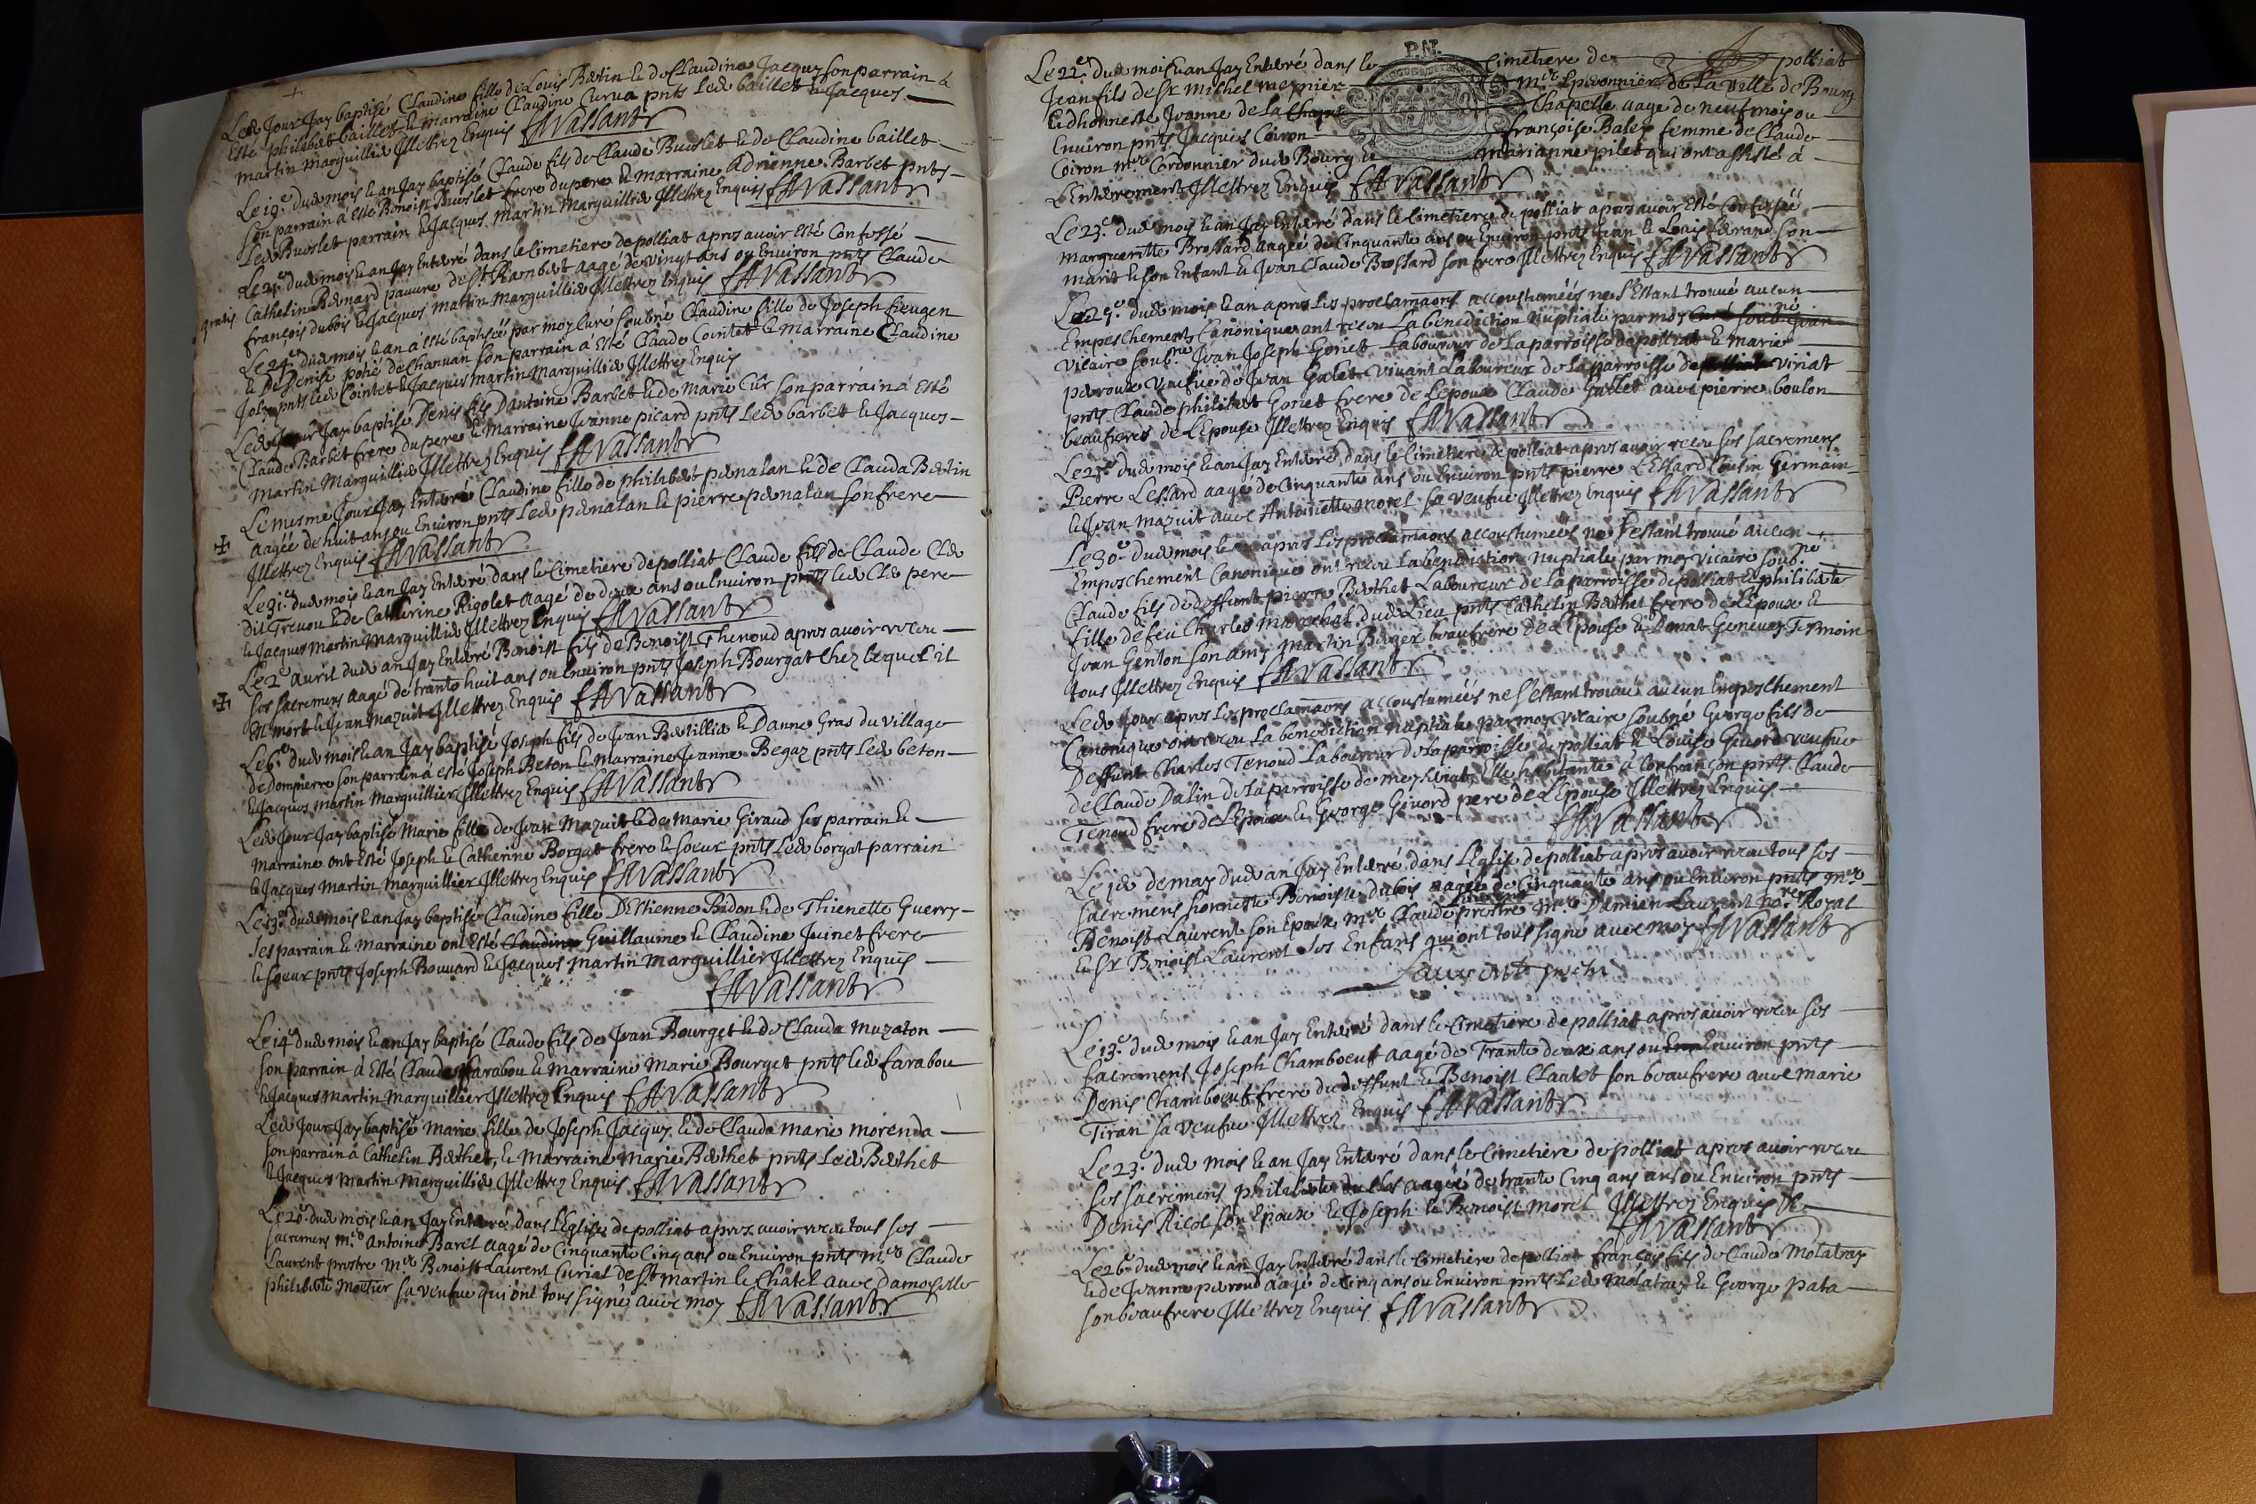 Led. Jour Jay baptisé Claudine fille de Louis Bertin & de Claudine Jacquy son parrain à
Esté philibert baillet & marraine Claudine Curva pnts Led. baillet & Jacques
martin marguillier Illettrez Enquis Vallant
Le 19e dud. mois & an Jay baptisé Claude fils de Claude Buirlet & de Claudine baillet
son parrain à Esté Benoist Buirlet frere du pere & marraine Adrienne Barbet pnts
Led. Buirlet parrain & Jacques martin marguillier Illettrez Enquis Vallant
Le 21e dud. mois & an Jay Enterré dans le Cimetiere de polliat apres avoir Esté Confessé
gratis Cathelin Bernard pauvre de St Rambert aagé de vingt ans ou Environ pnts Claude
françois dubois & Jacques martin marguillier Illettrez Enquis Vallant
Le 24e dud. mois & an à esté baptisée par moy Curé soubné Claudine fille de Joseph fieugen
& De Denise poisé de Chanvan son parrain à Esté Claude Cointet & marraine Claudine
Joly pnts led. Cointet & Jacques martin marguillier Illettrez Enquis
Led. Jour Jay baptisé Denis fils D'antoine Barbet & de Marie Cûr son parrain à Esté
Claude Barbet frere du pere & marraine Jeanne picard pnts Led. barbet & Jacques
martin Marguillier Illettrez Enquis Vallant
Le mesme Jour Jay Enterré Claudine fille de philibert penalan & de Clauda Bertin
aagée de huit ans ou Environ pnts Led. penalan & pierre penalan son frere
Illettrez Enquis Vallant
Le 31e dud. mois & an Jay Enterré dans le Cimetiere de polliat Claude fils de Claude Cler
dit Trevou & de Catherine Rigolet aagé de deux ans ou Environ pnts led. Cler pere
& Jacques martin marguillier Illettrez Enquis Vallant
Le 2e avril dud. an Jay Enterré Benoist fils de Benoist Thenoud apres avoir receu
ses sacremens aagé de trante huit ans ou Environ pnts Joseph Bourgat Chez lequel il
Est mort & Jean mazuit Illettrez Enquis Vallant
Le 6e dud. mois & an Jay baptisé Joseph fils de Jean Bertillier & Danne Gras du village
de Dompierre son parrain à esté Joseph Beton & Marraine Jeanne Begaz pnts Led. beton
& Jacques martin Marguillier Illettrez Enquis Vallant
Led. Jour Jay baptisé Marie fille de Jean Mazuit & de Marie Giraud ses parrain &
marraine ont Esté Joseph & Catherine Borgat frere & soeur pnts Led. borgat parrain
& Jacques Martin Marguillier Illettrez Enquis Vallant
Le 13e dud. mois & an Jay baptisé Claudine fille D'Etienne Bidon & de Thienette Guerry
ses parrain & marraine ont Esté Claudine Guillaume & Claudine Juinet frere
& soeur pnts Joseph Bouvard & Jacques martin Marguillier Illettrez Enquis
Vallant
Le 14e dud. mois & an Jay baptisé Claude fils de Jean Bourget & de Clauda muzaton
son parrain à Esté Claude farabou & marraine Marie Bourget pnts led. farabou
& Jacques Martin Marguillier Illettrez Enquis Vallant
Led. Jour Jay baptisé Marie fille de Joseph Jacquy & de Clauda marie morenda
son parrain à Cathelin Berthet, & marraine Marie Berthet pnts Led. Berthet
& Jacques Martin Marguillier Illettrez Enquis Vallant
Le 20e dud. mois & an Jay Enterré dans L'Eglise de polliat apres avoir receu tous ses
sacremens mre Antoine Barel aagé de Cinquante Cinq ans ou Environ pnts mre Claude
Laurent prestre mre Benoist Laurent Curial de St martin le Chatel avec damoiselle
philiberte moetier sa veufue qui ont tous signé avec moy Vallant
P.NT.
Le 22e dud. mois & an Jay Enterré dans le Cimetiere de polliat
Jean fils de Sr michel meynier mre Eperonnier de La ville de Bourg
& dhonneste Jeanne de la Chapelle aagé de neuf mois ou
Environ pnts Jacques Coiron françoise Baley femme de Claude
Coiron mre Cordonnier dud. Bourg & marianne pilet qui ont assisté à
L'Enterrement Illettrez Enquis Vallant
Le 23e dud. mois & an Jay Enterré dans le Cimetiere de polliat apres avoir Esté Confessée
marguerite Brossard aagée de Cinquante ans ou Environ pnts Jean & Louis ferrand son
marit & son Enfant & Jean Claude Brossard son frere Illettrez Enquis Vallant
Le 25e dud. mois & an apres les proclamaons accoustumées ne s'Estant trouué aucun
Empeschement Canonique ont receu La benediction nuptiale par moy
vicaire soubné Jean Joseph Goriet Laboureur de La parroisse de polliat & marie
peroux veufue de Jean Galet vivant Laboureur de La parroisse de viriat
pnts Claude philibert Goriet frere de Lepoux Claude Gallet avec pierre boulon
beaufreres de L'Epouse Illettrez Enquis Vallant
Le 28e dud. mois & an Jay Enterré dans le Cimetiere de polliat apres avoir receu ses sacremens
Pierre Lessard aagé de Cinquante ans ou Environ pnts pierre Lessard Cousin Germain
& Jean mazuit avec Antoinette morel sa veufue Illettrez Enquis Vallant
Le 30e dud. mois & an apres les proclamaons accoustumées ne s'estant trouué aucun
Empeschement Canonique ont receu La benediction nuptiale par moy vicaire soubné
Claude fils de deffunt pierre Berthet Laboureur de La parroisse de polliat & philiberte
fille de feu Charles marechal dud. Lieu pnts Cathelin Berthet frere de L'Epoux &
Jean Genton son amy martin Buiger beaufrere de L'Epouse & Donat Genevay Tesmoin
tous Illettrez Enquis Vallant
Led. Jour apres les proclamaons accoustumées ne s'estant trouué aucun Empeschement
Canonique ont receu La benediction nuptiale par moy vicaire soubné George fils de
Deffunt Charles Tenoud Laboureur de La parroisse de polliat & Louise Givord veufue
de Claude Dalin de La parroisse de mezeriat, Elle habitante à Confrançon pnts Claude
Tenoud frere de L'Epoux & George Givord pere de L'Epouse Illettrez Enquis
Vallant
Le 1er de may dud. an Jay Enterré dans L'Eglise de polliat apres avoir receu tous ses
sacremens honneste Benoiste dubois aagée de Cinquante ans ou Environ pnts mre
Benoist Laurent son Epoux, mre Claude prestre mre Damien Laurent nore Royal
& Sr Benoist Laurent ses Enfans qui ont tous signé avec moy Vallant
Laurent
Le 13e dud. mois & an Jay Enterré dans le Cimetiere de polliat apres avoir receu ses
sacrement Joseph Chamboeuf aagé de Trante deux ans ou Environ pnts
Denis Chamboeuf frere du deffunt & Benoist Clautet son beaufrere avec marie
Tiran sa veufue Illettrez Enquis Vallant
Le 23e dud. mois & an Jay Enterré dans le Cimetiere de polliat apres avoir receu
ses sacremens philiberte aagée de trante Cinq ans ans ou Environ pnts
Denis Ricol son Epoux & Joseph & Benoist Morel Illettrez Enquis
Vallant
Le 26e dud. mois & an Jay Enterré dans le Cimetiere de polliat françois fils de Claude Molatray
& de Jeanne peroud aagé de Cinq ans ou Environ pnts Led. Molatray & George pata
son beaufrere Illettrez Enquis Vallant